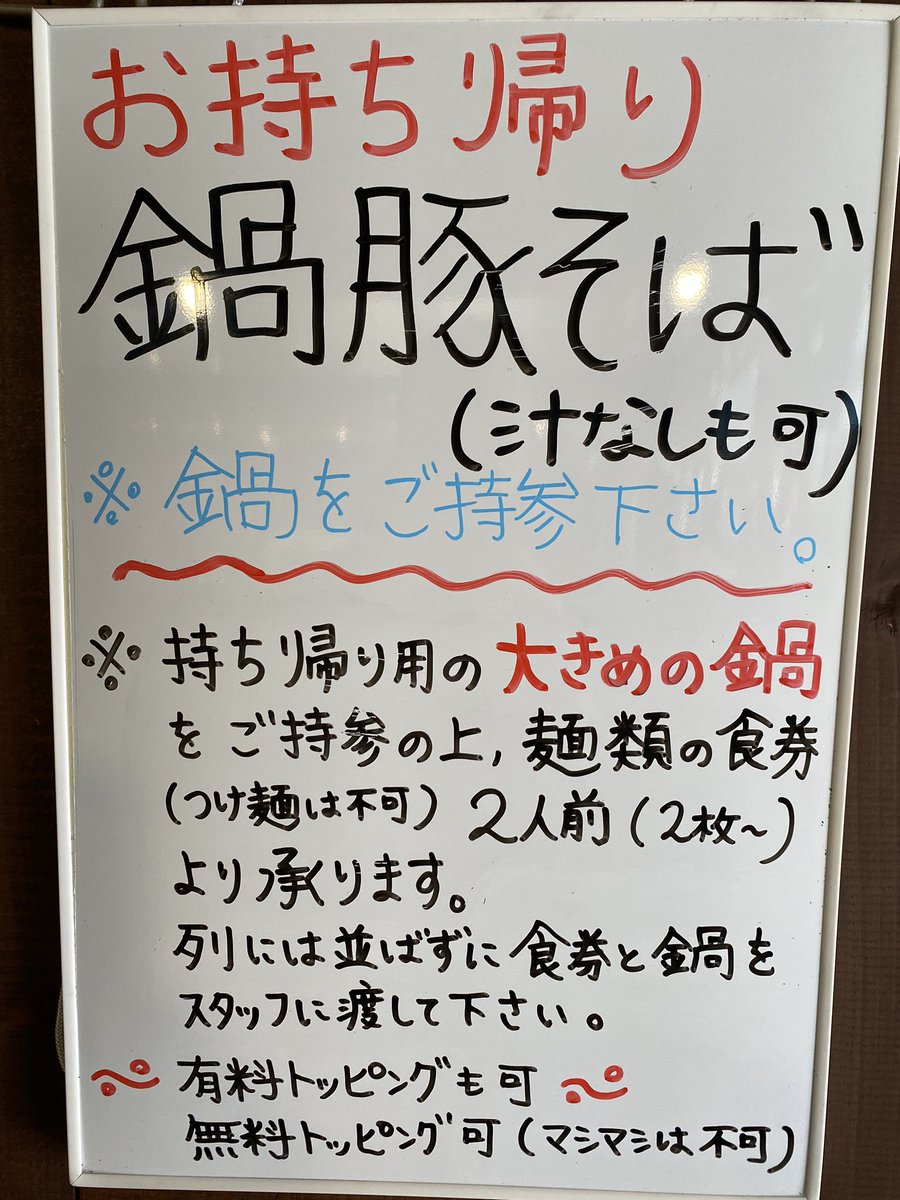 お持ち帰り
鍋豚そば
(汁なしも可)
※鍋をご持参下さい。
※持ち帰り用の大きめの鍋
をご持参の上,麺類の食券
(つけ麺は不可)2人前(2枚〜)
より承ります。
列には並ばずに食券と鍋を
スタッフに渡して下さい。
有料トッピングも可
無料トッピング可(マシマシは不可)